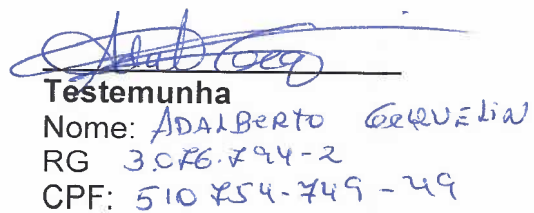 Testemunha
Nome: ADALBERTO
RG 3.076.794-2
CPF: 510 754-749-49